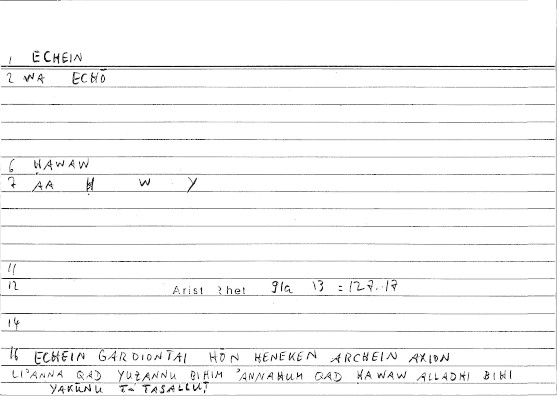 1 ECHEIN
2 WA ECHŌ
6 ḤAWAW
7 AA Ḥ W Y
11
12 Arist Rhet 91a 13 = 127.17
14
16 ECHEIN GAR DIONTAI HŌN HENEKEN ARCHEIN AXION
LI'ANNA QAD YUẒANNU BIHIM 'ANNAHUM QAD ḤAWAW ALLADHI BIHI
YAKŪNU T- TASALLUṬ